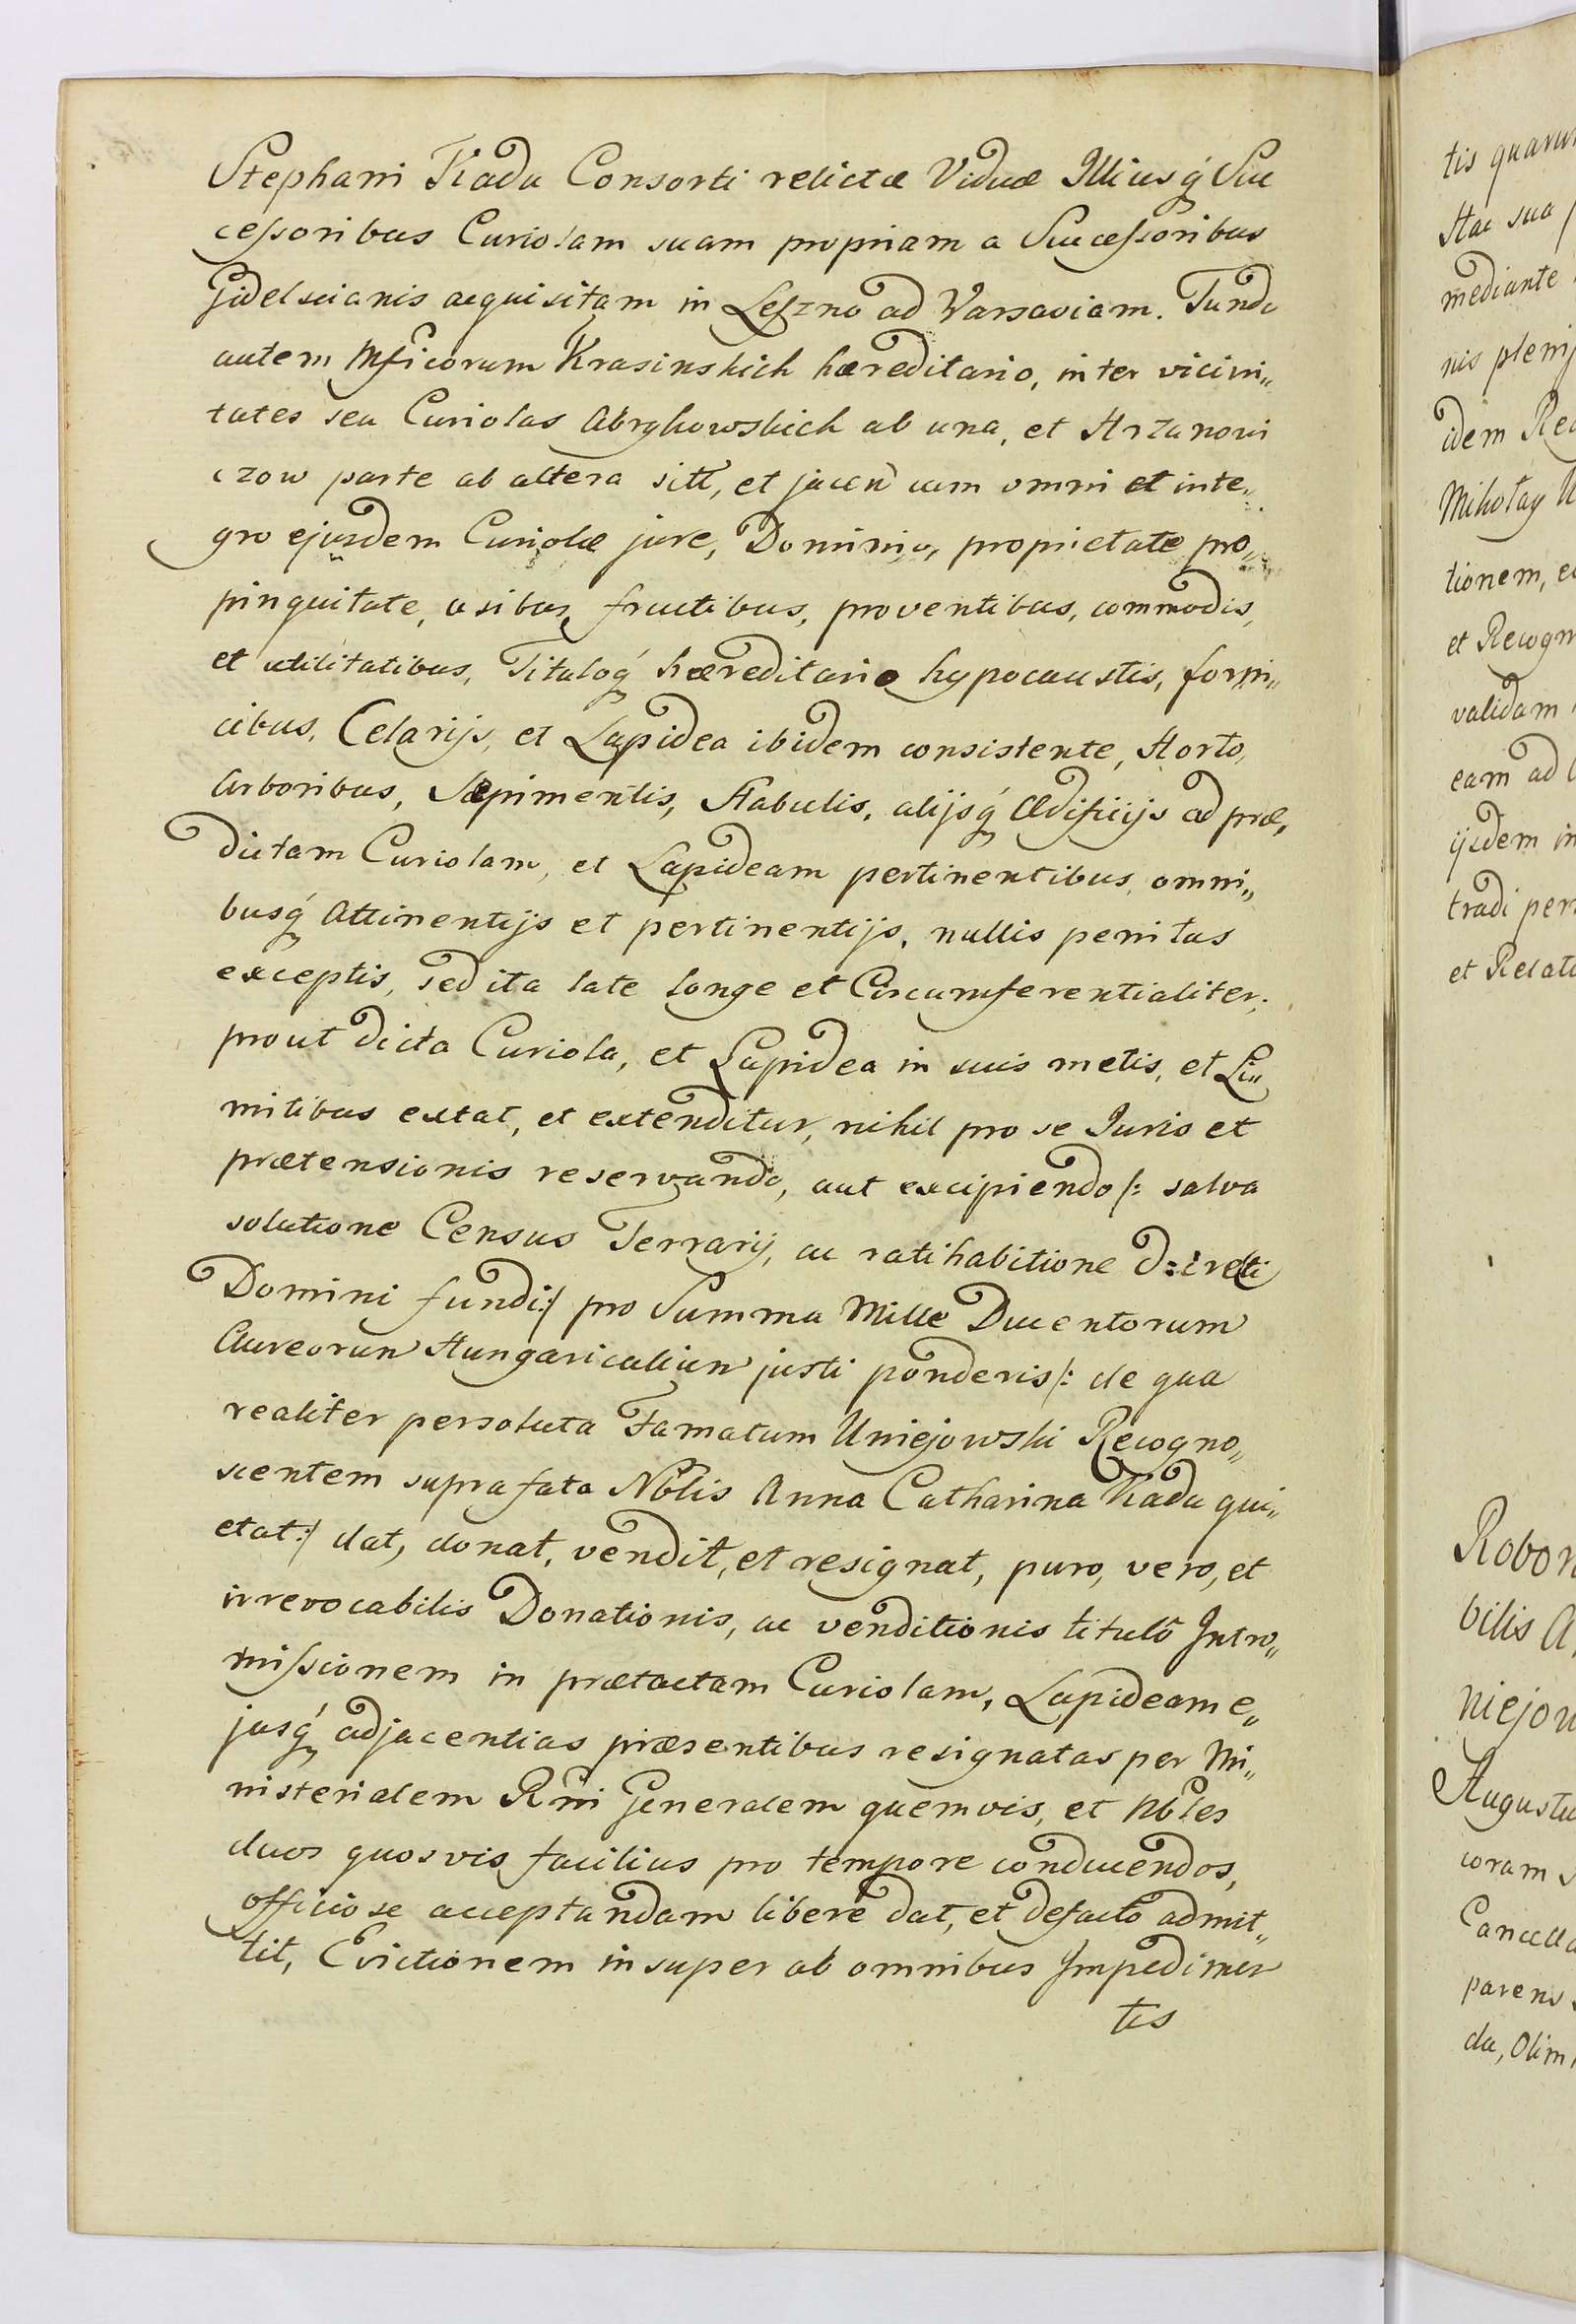 Stephani Kadu Consorti relictæ Viduæ Illiusq́ Suc
cessoribus Curiolam suam propriam a Successoribus
Gidelscianis acquisitam in Leszno ad Varsaviam. Fundo
autem Mficorum Krasinskich hæreditario, inter vicini„
tates seu Curiolas Abrykowskich ab una, et Arzanowi
czow parte ab altera sitt, et jacen cum omni et inte„
gro ejusdem Curiolæ jure, Dominio, proprietate pro„
pinquitate, usibus, fructibus, proventibus, commodis,
et utilitatibus, Tituloq́ hæreditario hypocaustis, forni„
cibus, Celarijs, et Lapidea ibidem consistente, Horto,
Arboribus, Sæpimentis, Stabulis, alijsq́ Ædificijs ad præ„
dictam Curiolam, et Lapideam pertinentibus, omni„
busq́ Attinentijs et pertinentijs, nullis penitus
exceptis, sed ita late longe et Circumferentialiter,
prout dicta Curiola, et Lapidea in suis metis, et Li„
mitibus extat, et extenditur, nihil pro se Juris et
prætensionis reservando, aut excipiendo /: salva
solutione Census Terrarij, ac ratihabitione d:ireti
Domini fundi :/ pro Summa Mille Ducentorum
Aureorum Hungaricalium justi ponderis /: de qua
realiter persoluta Famatum Uniejowski Recogno„
scentem suprafata Nblis Anna Catharina Kadu qui„
etat :/ dat, donat, vendit, et resignat, puro, vero, et
irrevocabilis Donationis, ac venditionis titulô Intro„
missionem in prætactam Curiolam, Lapideam e„
jusq́ adjacentias præsentibus resignatas per Mi„
nisterialem Rni Generalem quemvis, et Nbles
duos quosvis facilius pro tempore conducendos,
officiose acceptandam libere dat, et defacto admit„
tit, Evictionem insuper ab omnibus Impedimen
tis
tis quarum
Hac sua
mediante
nis plenj
idem Rec
Mikołay U
tionem, e
et Recogn
validam
eam ad
ijsdem in
tradi per
et Relati
Robor
bilis A
niejow
Augustu
coram
Cancella
parens
du, Olim